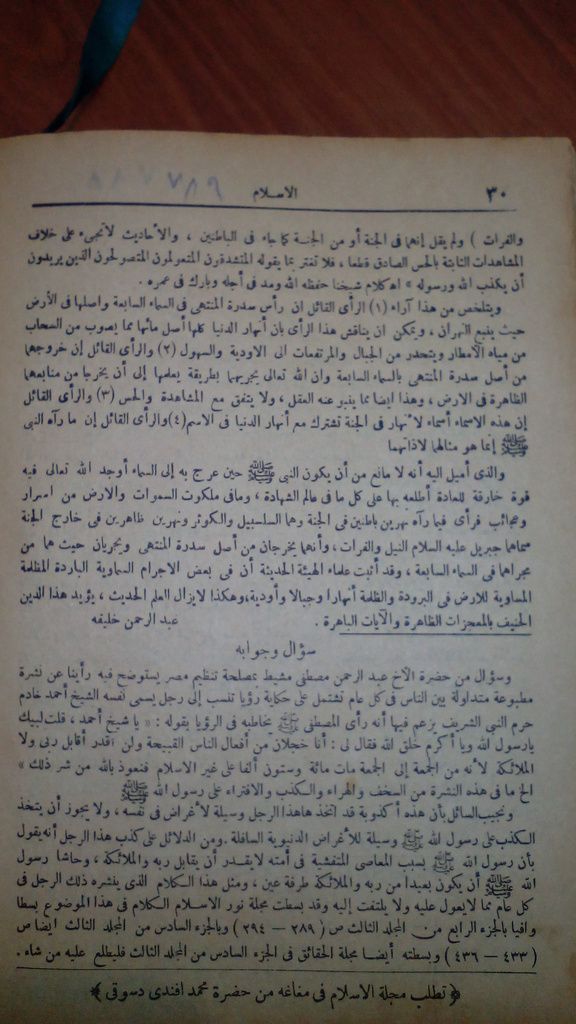 ٣٠ الاسلام
والفرات ) ولم يقل إنهما فى الجنة أو من الجنة كما جاء فى الباطنين ، والأحاديث لاتجىء على خلاف
المشاهدات الثابتة بالحس الصادق قطعا ، فلا تغتر بما يقوله المتشدقون المتعولمون المتصولحون الذين يريدون
أن يكذب الله ورسوله » اهـ كلام شيخنا حفظه الله ومد فى أجله وبارك فى عمره .
ويتلخص من هذا آراء (١) الرأى القائل ان رأس سدرة المنتهى فى السماء السابعة واصلها فى الأرض
حيث ينبع النهران ، ويمكن ان يناقش هذا الرأى بان أنهار الدنيا كلها أصل مائها مما يصوب من السحاب
من مياه الأمطار ويتحدر من الجبال والمرتفعات الى الاودية والسهول (٢) والرأى القائل إن خروجهما
من أصل سدرة المنتهى بالسماء السابعة وان الله تعالى يجريهما بطريقة يعلمها إلى أن يخرجا من منابعهما
الظاهرة فى الارض ، وهذا ايضا مما ينبو عنه العقل ، ولا يتفق مع المشاهدة والحس (٣) والرأى القائل
إن هذه الاسماء أسماء لأنهار فى الجنة تشترك مع أنهار الدنيا فى الاسم (٤) والرأى القائل إن ما رآه النبى
ﷺ إنما هو مثالهما لاذاتهما
والذى أميل اليه أنه لا مانع من أن يكون النبى ﷺ حين عرج به إلى السماء أوجد الله تعالى فيه
قوة خارقة للعادة أطلعه بها على كل ما فى عالم الشهادة ، ومافى ملكوت السموات والارض من اسرار
وعجائب فرأى فيما رآه نهرين باطنين فى الجنة وهما السلسبيل والكوثر ونهرين ظاهرين فى خارج الجنة
سماهما جبريل عليه السلام النيل والفرات ، وأنهما يخرجان من أصل سدرة المنتهى ويجريان حيث هما من
مجراهما فى السماء السابعة ، وقد أثبت علماء الهيئة الحديثة أن فى بعض الاجرام السماوية الباردة المظلمة
المساوية للارض فى البرودة والظلمة أنهارا وجبالا وأودية، وهكذا لايزال العلم الحديث ، يؤيد هذا الدين
الحنيف بالمعجزات الظاهرة والآيات الباهرة . عبد الرحمن خليفه
سؤال وجوابه
وسؤال من حضرة الأخ عبد الرحمن مصطفى مشيط بمصلحة تنظيم مصر يستوضح فيه رأينا عن نشرة
مطبوعة متداولة بين الناس فى كل عام تشتمل على حكاية رؤيا تنسب إلى رجل يسمى نفسه الشيخ أحمد خادم
حرم النبى الشريف يزعم فيها أنه رأى المصطفى ﷺ يخاطبه فى الرؤيا بقوله : « يا شيخ أحمد ، قلت لبيك
يارسول الله ويا أكرم خلق الله فقال لى : أنا خجلان من أفعال الناس القبيحة ولن أقدر أقابل ربى ولا
الملائكة لأنه من الجمعة إلى الجمعة مات مائة وستون ألفا على غير الاسلام فنعوذ بالله من شر ذلك »
الخ ما فى هذه النشرة من السخف والهراء والكذب والافتراء على رسول الله ﷺ
ونجيب السائل بأن هذه أكذوبة قد اتخذها هذا الرجل وسيلة لأغراض فى نفسه ، ولا يجوز أن يتخذ
الكذب على رسول الله ﷺ وسيلة للأغراض الدنيوية السافلة . ومن الدلائل على كذب هذا الرجل أنه يقول
بأن رسول الله ﷺ بسبب المعاصى المتفشية فى أمته لايقدر أن يقابل ربه والملائكة ، وحاشا رسول
الله ﷺ أن يكون بعيدا من ربه والملائكة طرفة عين ، ومثل هذا الكلام الذى ينشره ذلك الرجل فى
كل عام مما لايعول عليه ولا يلتفت إليه وقد بسطت مجلة نور الاسلام الكلام فى هذا الموضوع بسطا
وافيا بالجزء الرابع من المجلد الثالث ص ( ٢٨٩ — ٢٩٤ ) وبالجزء السادس من المجلد الثالث ايضا ص
( ٤٣٣ — ٤٣٦ ) وبسطته أيضا مجلة الحقائق فى الجزء السادس من المجلد الثالث فليطلع عليه من شاء .
﴿ تطلب مجلة الاسلام فى مغاغه من حضرة محمد افندى دسوقى ﴾